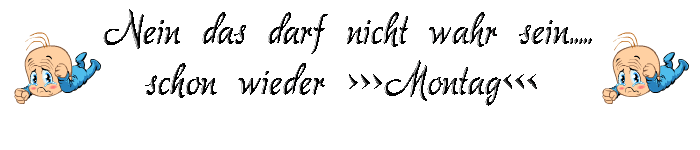 Nein das darf nicht wahr sein.....
schon wieder >>>Montag<<<